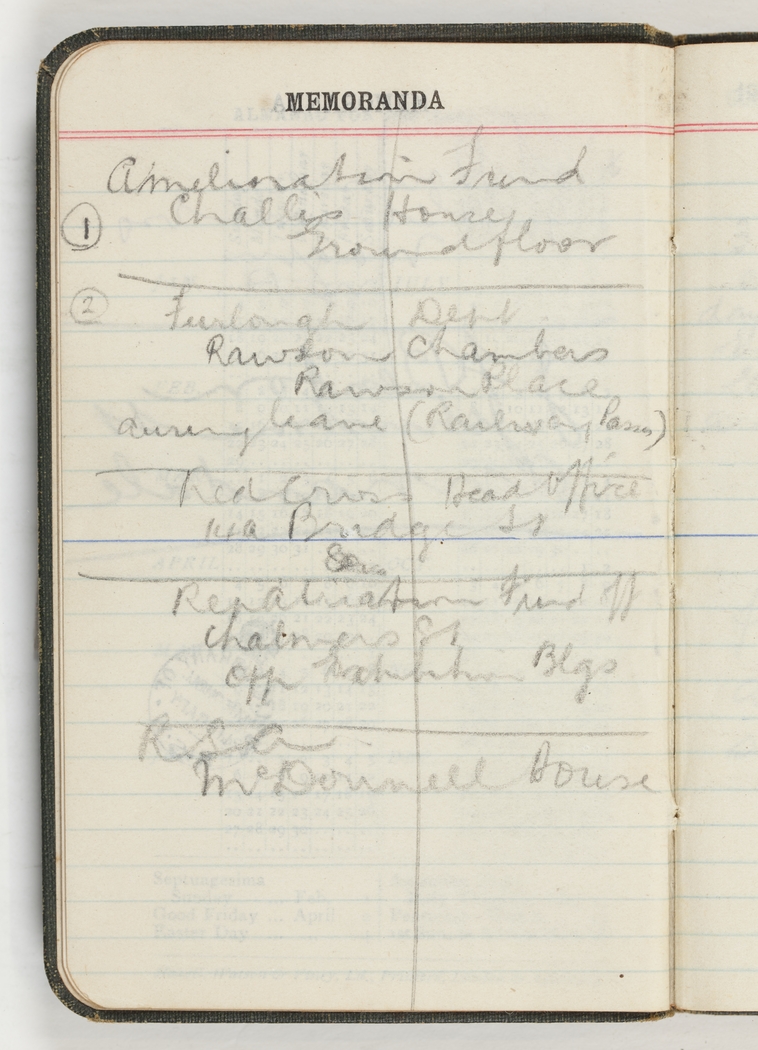 MEMORANDA
Amelioration Fund
1 Challis House
Ground floor
2 Furlough Dept
Rawson Chambers
Rawson Place
during leave (Railway Passes)
Red Cross Head Office
14a Bridge St
Repatriation Fund off
Chalmers St
Opp Exhibition Blgs
R.S.A
McDonnell House